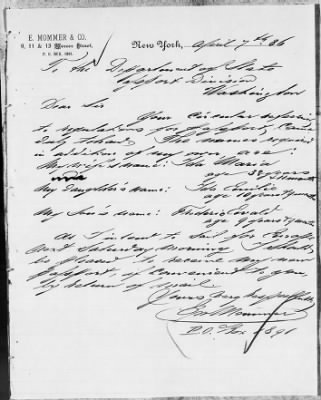 E. MOMMER & CO.
9, 11 & 13 Mercer Street,
New York, April 7th 86
To the Department of State
Passport Division
Washington
Dear Sir
Your circular referring
to regulations for passports came
duly to hand. The names required
in addition of my own are:
My Wife's Name: Ida Maria
age 38 years
My Daughter's Name: Ida Emilie
age 10 years
My Son's Name: Frederic Ewald
age 9 years
As I intend to sail for Europe
next Saturday morning I should
be pleased to receive my new
passport, if convenient to you,
by return of mail.
Yours very respectfully
Mommer
P.O. Box 1891